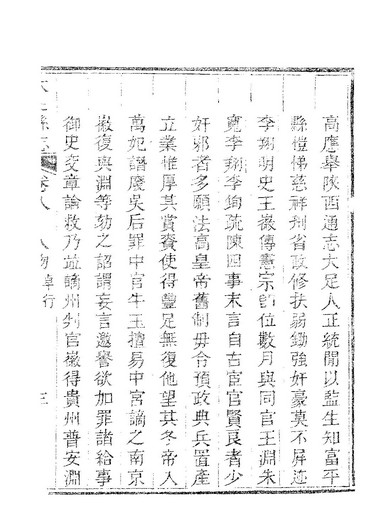 高應舉陝西通志大足人正統間以監生知富平
縣愷悌慈祥刑省政修扶弱鋤強奸豪莫不屏迹
李翔明史王徽傳憲宗卽位數月與同官王淵朱
寬李翔李鈞疏陳四事末言自古宦官賢良者少
奸邪者多願法高皇帝舊制毋令預政典兵置產
立業惟厚其賞賚使得豐足無復他望其冬帝入
萬妃譖廢吳后罪中官牛玉擅易中宮謫之南京
徽復與淵等劾之詔謂妄言邀譽欲加罪諸給事
御史交章論救乃並謫州判官徽得貴州普安淵
大足縣志 卷八 人物 卓行 三